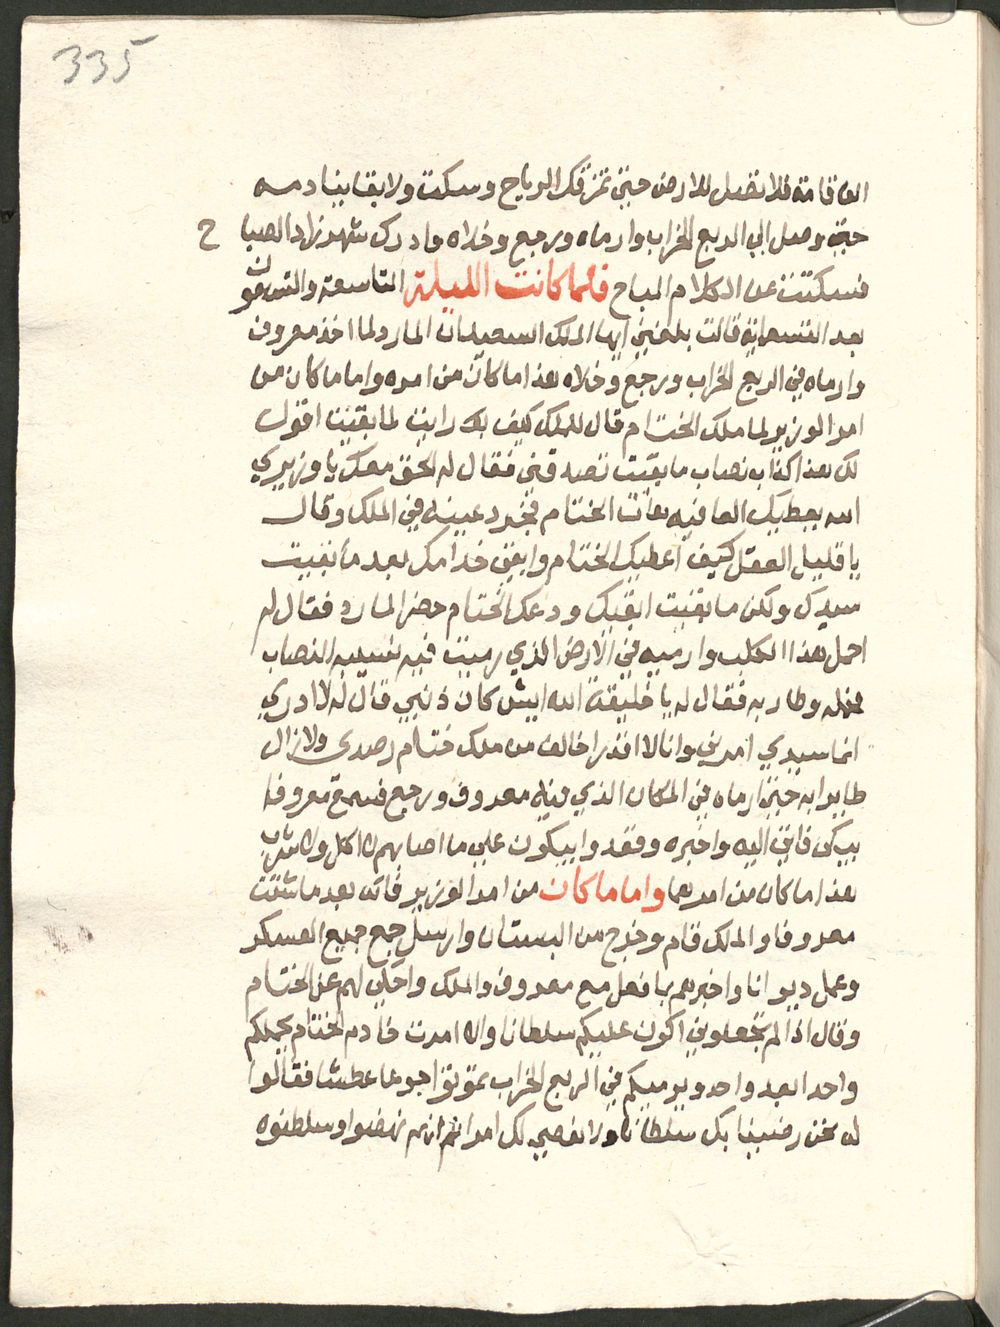 335
الف قامة فلا تصل للارض حتي تمزقك الرياح وسكت ولا بقا بينادمه
حتي وصل الي الربع الخراب وارماه ورجع وخلاه وادرك شهرزاد الصبا
ح
فسكتت عن الكلام المباح فلما كانت الليلة التاسعة والتسعون
بعد التسعماية قالت بلغني ايها الملك السعيد ان المارد لما اخذ معروف
وارماه في الربع الخراب ورجع وخلاه هذا ما كان من امره واما ما كان من
امر الوزير لما ملك الختام قال للملك كيف بك رايت لما بقيت اقول
لك هذا كذاب نصاب ما بقيت تصدقني فقال له الحق معك يا وزيري
الله يعطيك العافيه هات الختام فخرد عينيه في الملك وقال
يا قليل العقل كيف اعطيك الختام وابقي خدامك بعد ما بقيت
سيدك ولكن ما بقيت ابقيك ودعك الختام حضر المارد فقال له
احمل هذا الكلب وارميه في الارض الذي رميت فيه نسيبه النصاب
فحمله وطار به فقال له يا خليقة الله ايش كان ذنبي قال له لا ادري
انما سيدي امرني وانا لا اقدر اخالف من ملك ختام رصدي ولا زال
طايرا به حتي ارماه في المكان الذي فيه معروف ورجع فسمع معروفا
يبكي فاتي اليه واخبره وقعدوا يبكون علي ما اصابهم لا اكل ولا شرب
هذا ما كان من امرهما واما ما كان من امر الوزير فانه بعد ما شتت
معروفا والملك قام وخرج من البستان وارسل جمع جميع العسكر
وعمل ديوانا واخبرهم بما فعل مع معروف والملك واحكي لهم عن الختام
وقال اذا لم تجعلوني اكون عليكم سلطانا والا امرت خادم الختام يحملكم
واحدا بعد واحد ويرميكم في الربع الخراب تموتوا جوعا عطشا فقالوا
له نحن رضينا بك سلطانا ولا نعصي لك امرا ثم انهم نهضوا وسلطنوه